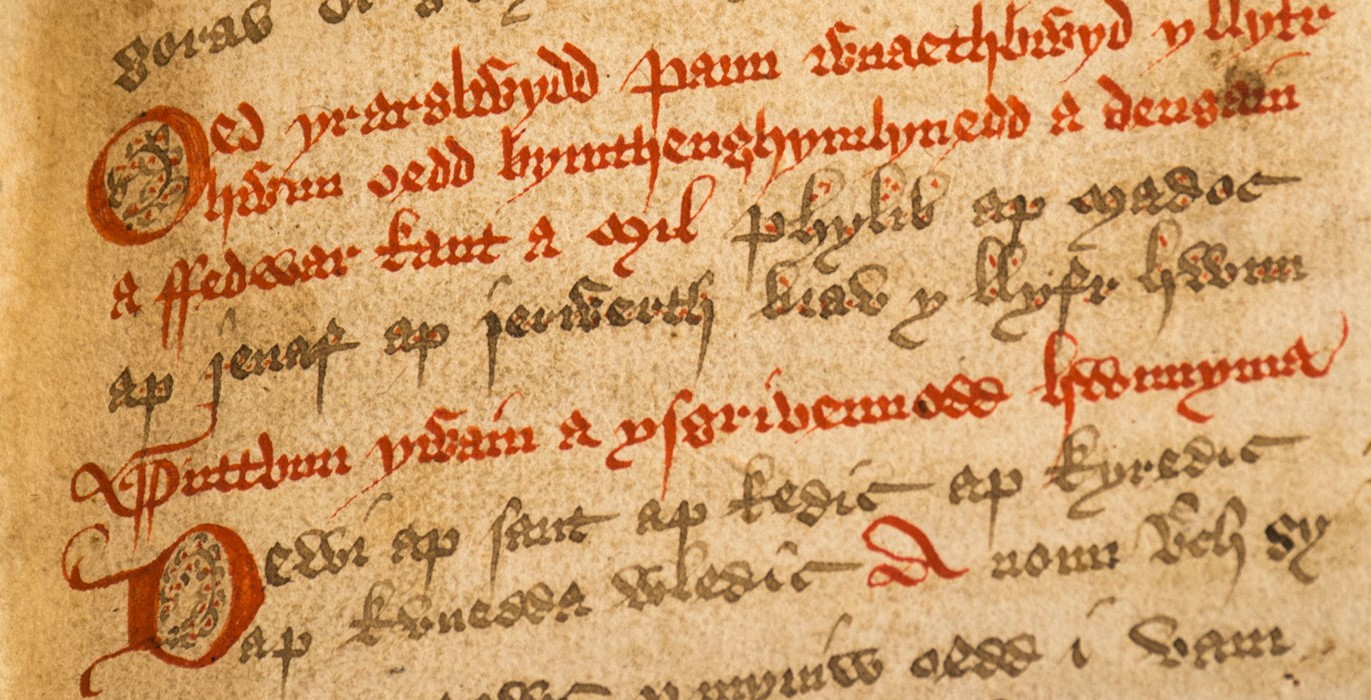 gorav
Oed yr arglwydd pann wnaethbwyd y llyfr
hwnn oedd bymthenghymlynedd a deugain
a ffedwar kant a mil phylib ap madoc
ap jenaf ap jerwerth biav y llyfr hwnn
Guttvun ywain a ysgrivennodd hwnnyma
Dewi ap sant ap kedic ap kyredic
ap kvnedda wledic A nonn vch gy
ymyniw oedd i vam